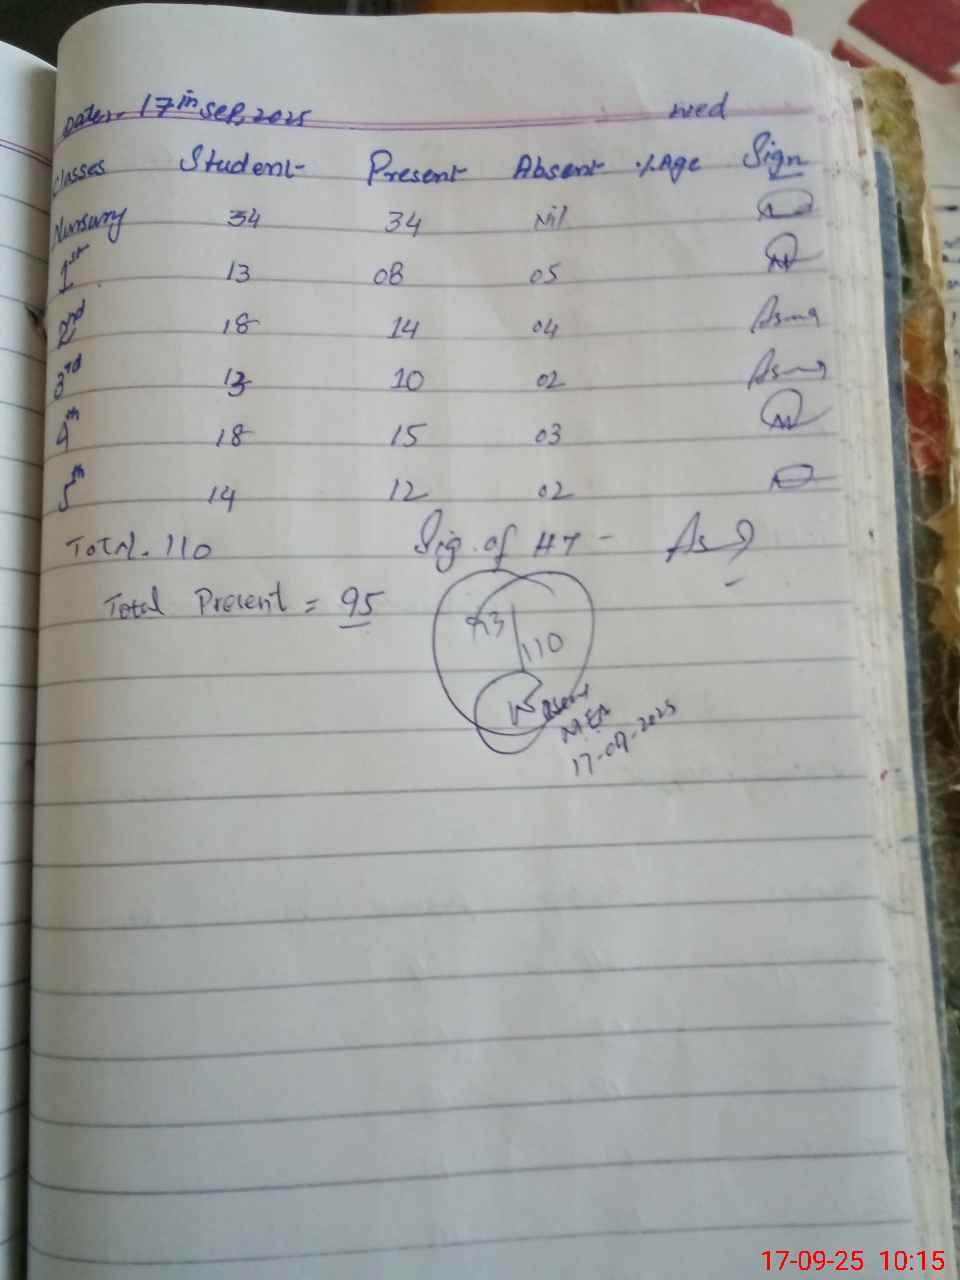 Date:- 17th Sep, 2025 Wed
Classes Student Present Absent %Age Sign
Nursury 34 34 Nil
1st 13 08 05
2nd 18 14 04 Asma
3rd 13 10 02 Asma
4th 18 15 03
5th 14 12 02
Total. 110 Sig. of HT -
Total Present = 95
110
MEA
17-09-2025
17-09-25 10:15